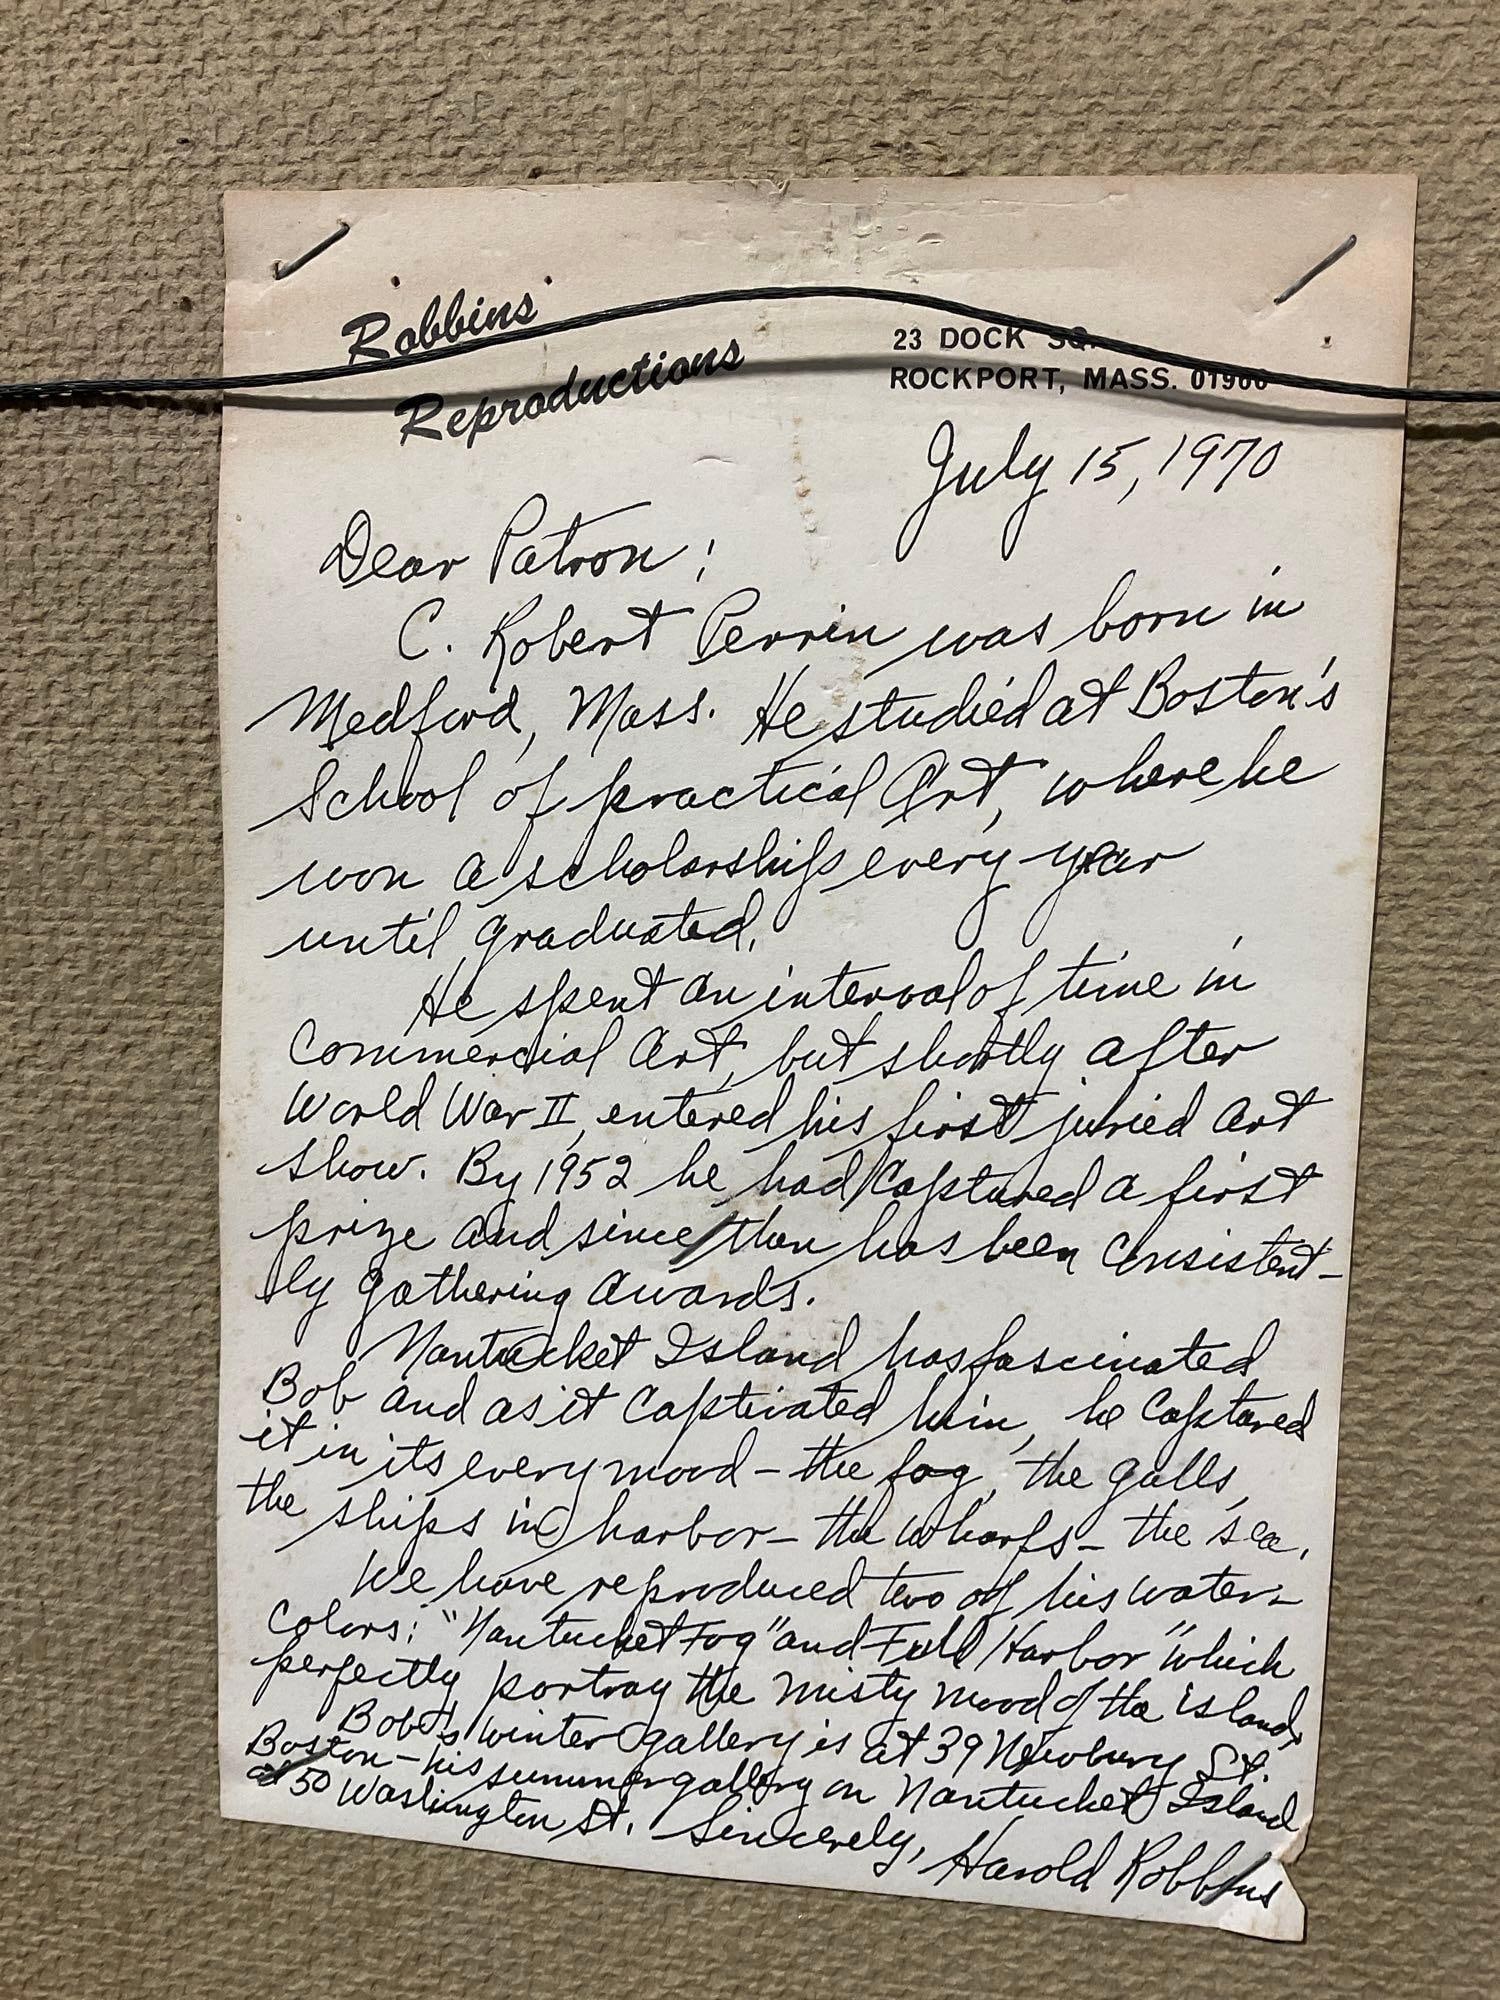 Robbins
Reproductions
23 DOCK SQ.
ROCKPORT, MASS. 01966
July 15, 1970
Dear Patron:
C. Robert Perrin was born in
Medford, Mass. He studied at Boston's
School of practical Art, where he
won a scholarship every year
until graduated.
He spent an interval of time in
Commercial Art, but shortly after
World War II, entered his first juried art
show. By 1952 he had captured a first
prize and since then has been consistent-
ly gathering awards.
Nantucket Island has fascinated
Bob and as it captivated him, he captured
it in its every mood - the fog, the gulls,
the ships in harbor - the wharfs - the sea.
We have reproduced two of his water-
colors: "Nantucket Fog" and Full Harbor" which
perfectly portray the misty mood of the island.
Bob's winter gallery is at 39 Newbury St.
Boston - his summer gallery on Nantucket Island
at 50 Washington St. Sincerely, Harold Robbins